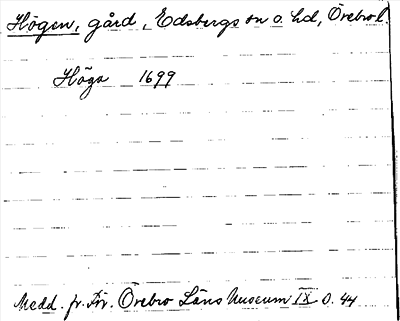 Högen, gård, Edsbergs sn o. hd, Örebro l.
Höga 1699
Medd. fr. För. Örebro Läns Museum IX o. 44